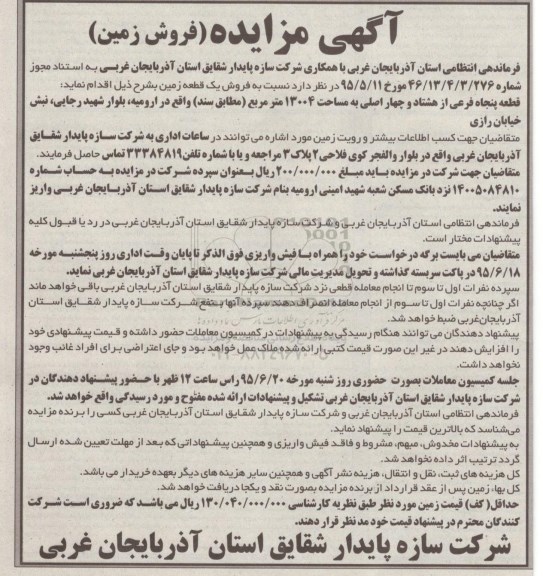 آگهی مزایده (فروش زمین)
فرماندهی انتظامی استان آذربایجان غربی با همکاری شرکت سازه پایدار شقایق استان آذربایجان غربی به استناد مجوز
شماره ۴۶/۱۳/۴/۳/۲۷۶ مورخ ۹۵/۵/۱۱ در نظر دارد نسبت به فروش یک قطعه زمین بشرح ذیل اقدام نماید:
قطعه پنجاه فرعی از هشتاد و چهار اصلی به مساحت ۱۳۰۰۴ متر مربع (مطابق سند) واقع در ارومیه، بلوار شهید رجایی، نبش
خیابان رازی
متقاضیان جهت کسب اطلاعات بیشتر و رویت زمین مورد اشاره می توانند در ساعات اداری به شرکت سازه پایدار شقایق
آذربایجان غربی واقع در بلوار والفجر کوی فلاحی ۲ پلاک ۳ مراجعه و یا با شماره تلفن ۳۳۳۸۴۸۱۹ تماس حاصل فرمایند.
متقاضیان جهت شرکت در مزایده باید مبلغ ۲۰۰/۰۰۰/۰۰۰ ریال بعنوان سپرده شرکت در مزایده به حساب شماره
۱۴۰۰۵۰۸۴۸۱۰ نزد بانک مسکن شعبه شهید امینی ارومیه بنام شرکت سازه پایدار شقایق استان آذربایجان غربی واریز
نمایند.
فرماندهی انتظامی استان آذربایجان غربی و شرکت سازه پایدار شقایق استان آذربایجان غربی در رد یا قبول کلیه
پیشنهادات مختار است.
متقاضیان می بایست برگه درخواست خود را همراه با فیش واریزی فوق الذکر تا پایان وقت اداری روز پنجشنبه مورخه
۹۵/۶/۱۸ در پاکت سربسته گذاشته و تحویل مدیریت مالی شرکت سازه پایدار شقایق استان آذربایجان غربی نماید.
سپرده نفرات اول تا سوم تا انجام معامله قطعی نزد شرکت سازه پایدار شقایق استان آذربایجان غربی باقی خواهد ماند
اگر چنانچه نفرات اول تا سوم از انجام معامله انصراف دهند سپرده آنها بنفع شرکت سازه پایدار شقایق استان
آذربایجان غربی ضبط خواهد شد.
پیشنهاد دهندگان می توانند هنگام رسیدگی به پیشنهادات در کمیسیون معاملات حضور داشته و قیمت پیشنهادی خود
را افزایش دهند در غیر این صورت قیمت کتبی ارائه شده ملاک عمل خواهد بود و جای اعتراضی برای افراد غائب وجود
نخواهد داشت.
جلسه کمیسیون معاملات بصورت حضوری روز شنبه مورخه ۹۵/۶/۲۰ راس ساعت ۱۲ ظهر با حضور پیشنهاد دهندگان در
شرکت سازه پایدار شقایق استان آذربایجان غربی تشکیل و پیشنهادات ارائه شده مفتوح و مورد رسیدگی واقع خواهد شد.
فرماندهی انتظامی استان آذربایجان غربی و شرکت سازه پایدار شقایق استان آذربایجان غربی کسی را برنده مزایده
می‌شناسد که بالاترین قیمت را پیشنهاد نماید.
به پیشنهادات مخدوش، مبهم، مشروط و فاقد فیش واریزی و همچنین پیشنهاداتی که بعد از مهلت تعیین شده ارسال
گردد ترتیب اثر داده نخواهد شد.
کل هزینه های ثبت، نقل و انتقال، هزینه نشر آگهی و همچنین سایر هزینه های دیگر بعهده خریدار می باشد.
کل بها، زمین پس از عقد قرارداد از برنده مزایده بصورت نقد و یکجا دریافت خواهد شد.
حداقل (کف) قیمت زمین مورد نظر طبق نظریه کارشناسی ۱۳۰/۰۴۰/۰۰۰/۰۰۰ ریال می باشد که ضروری است شرکت
کنندگان محترم در پیشنهاد قیمت خود مد نظر قرار دهند.
شرکت سازه پایدار شقایق استان آذربایجان غربی